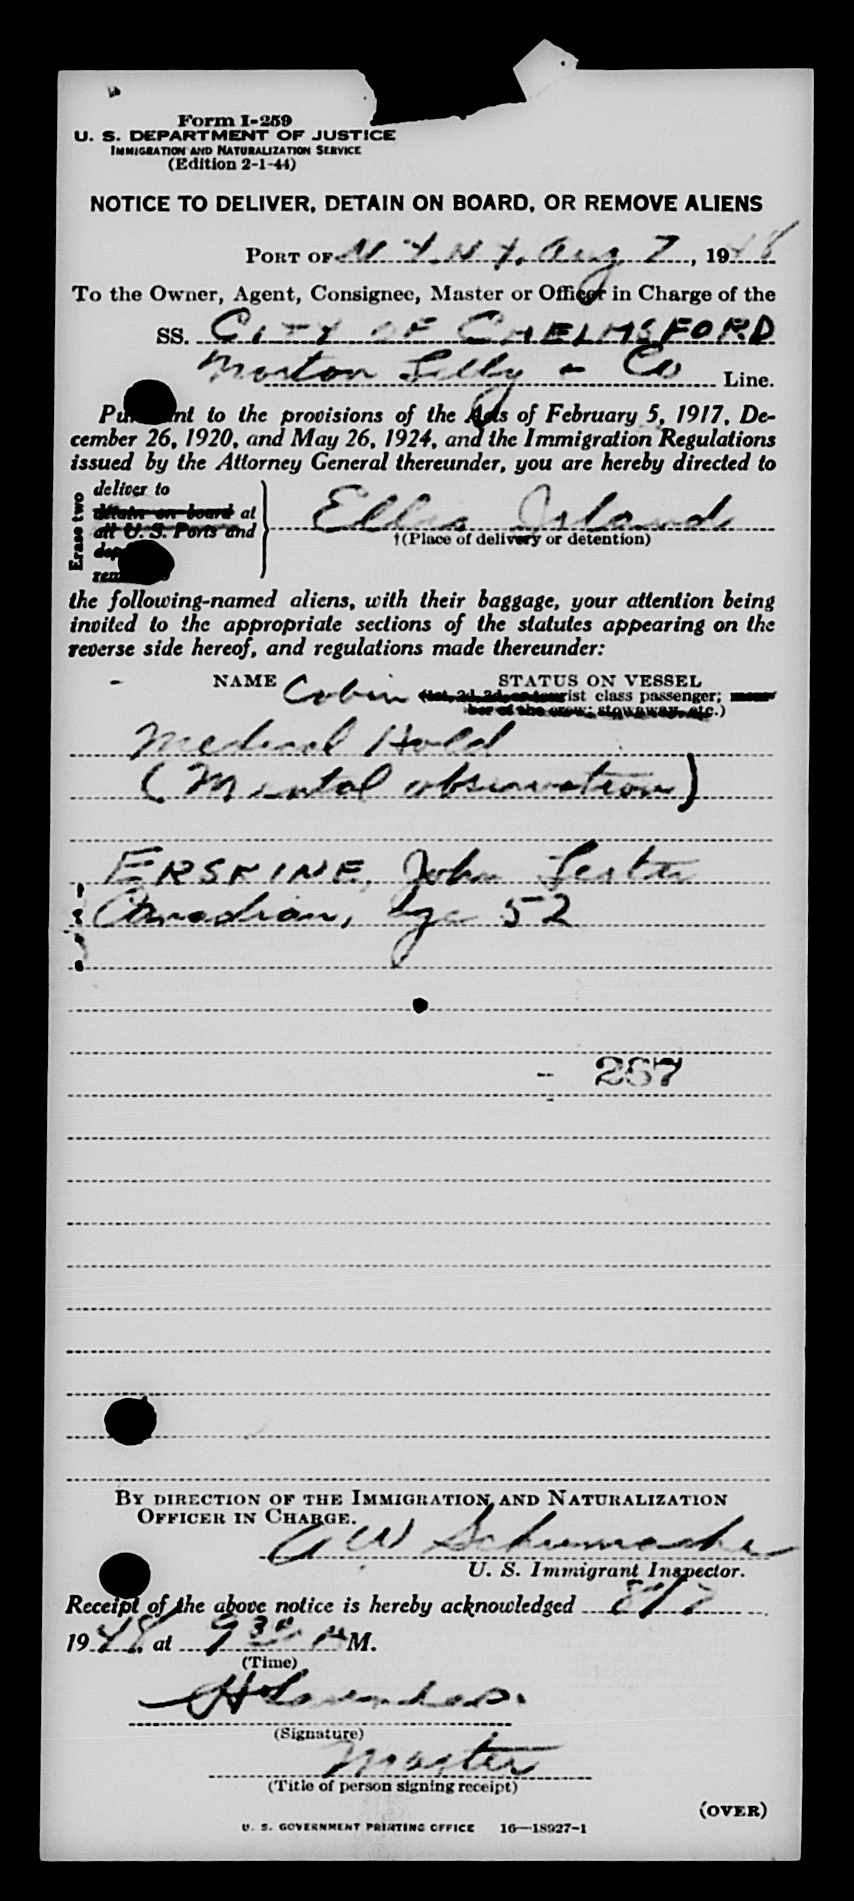 Form I-259
U. S. DEPARTMENT OF JUSTICE
IMMIGRATION AND NATURALIZATION SERVICE
(Edition 2-1-44)
NOTICE TO DELIVER, DETAIN ON BOARD, OR REMOVE ALIENS
PORT OF N.Y. N.Y. Aug 7, 1948
To the Owner, Agent, Consignee, Master or Officer in Charge of the
SS. CITY OF CHELMSFORD
Morton Lilly & Co Line.
Pursuant to the provisions of the Acts of February 5, 1917, De-
cember 26, 1920, and May 26, 1924, and the Immigration Regulations
issued by the Attorney General thereunder, you are hereby directed to
Erase two
deliver to
detain on board at
all U. S. Ports and
Ellis Island
†(Place of delivery or detention)
the following-named aliens, with their baggage, your attention being
invited to the appropriate sections of the statutes appearing on the
reverse side hereof, and regulations made thereunder:
NAME Cabin STATUS ON VESSEL
(1st, 2d, 3d, or tourist class passenger; mem-
ber of the crew; stowaway, etc.)
Medical Hold
(Mental observation)
ERSKINE, John Lester
Canadian, Age 52
- 267
BY DIRECTION OF THE IMMIGRATION AND NATURALIZATION
OFFICER IN CHARGE.
A W Schumacher
U. S. Immigrant Inspector.
Receipt of the above notice is hereby acknowledged 8/7
1948, at 9 30 A M.
(Time)
(Signature)
Master
(Title of person signing receipt)
(OVER)
U. S. GOVERNMENT PRINTING OFFICE 16—18927-1